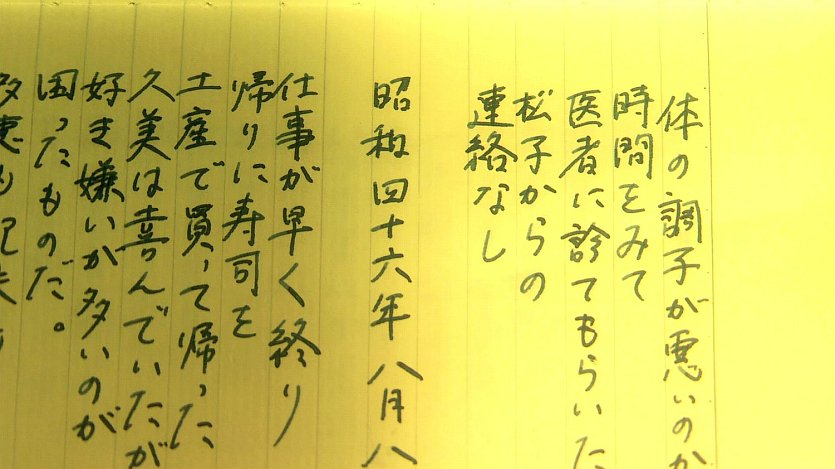 体の調子が悪いのか
時間をみて
医者に診てもらいた
松子からの
連絡なし
昭和四十六年八月八
仕事が早く終り
帰りに寿司を
土産で買って帰った
久美は喜んでいたが
好き嫌いが多いのが
困ったものだ。